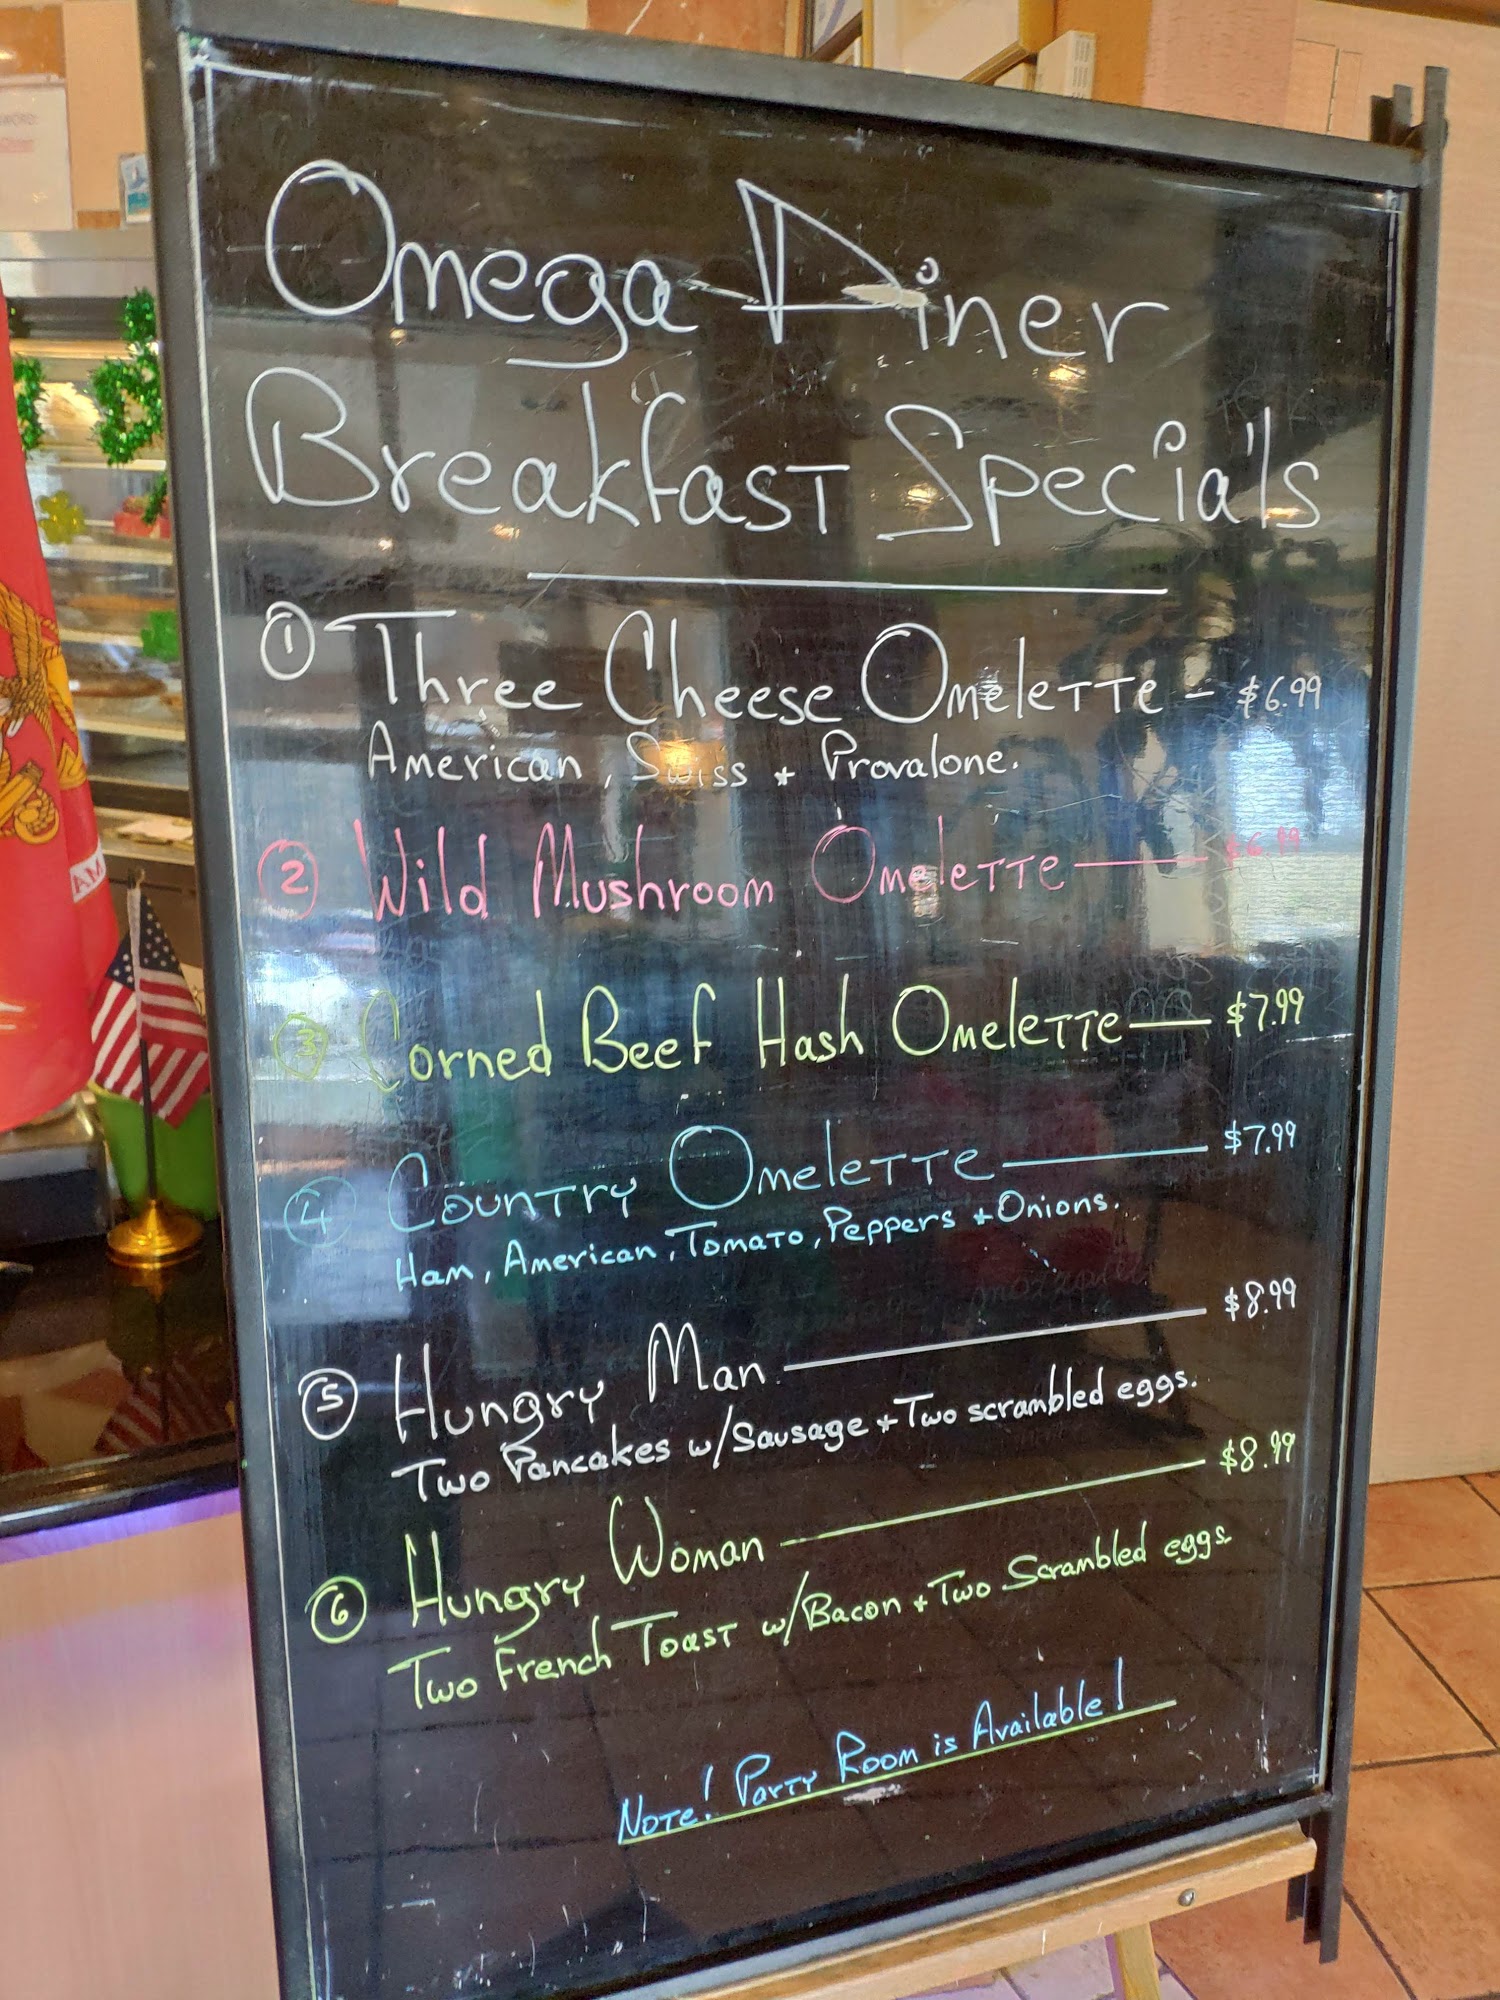 Omega Diner
Breakfast Specials
① Three Cheese Omelette - $6.99
American, Swiss + Provalone.
② Wild Mushroom Omelette — $6.99
③ Corned Beef Hash Omelette — $7.99
④ Country Omelette — $7.99
Ham, American, Tomato, Peppers + Onions.
⑤ Hungry Man — $8.99
Two Pancakes w/Sausage + Two scrambled eggs.
⑥ Hungry Woman — $8.99
Two French Toast w/Bacon + Two Scrambled eggs
Note! Party Room is Available!